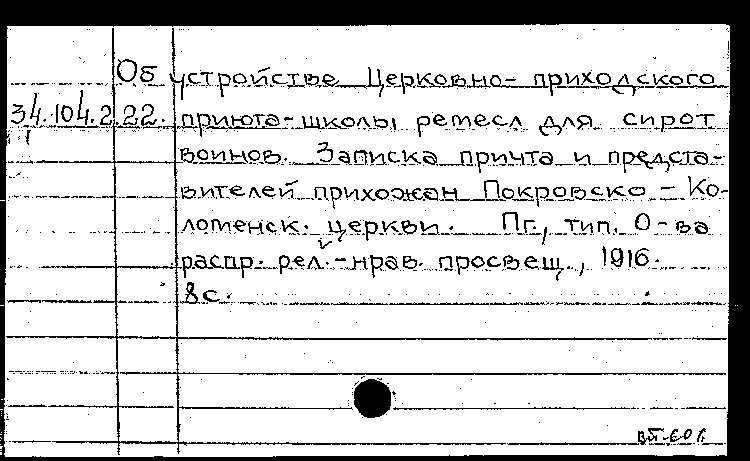 Об устройстве Церковно-приходского
34.104.2.22. приюта-школы ремесл для сирот
воинов. Записка причта и предста-
вителей прихожан Покровско-Ко-
ломенск. церкви. Пг., тип. О-ва
распр. рел.-нрав. просвещ., 1916.
8 с.